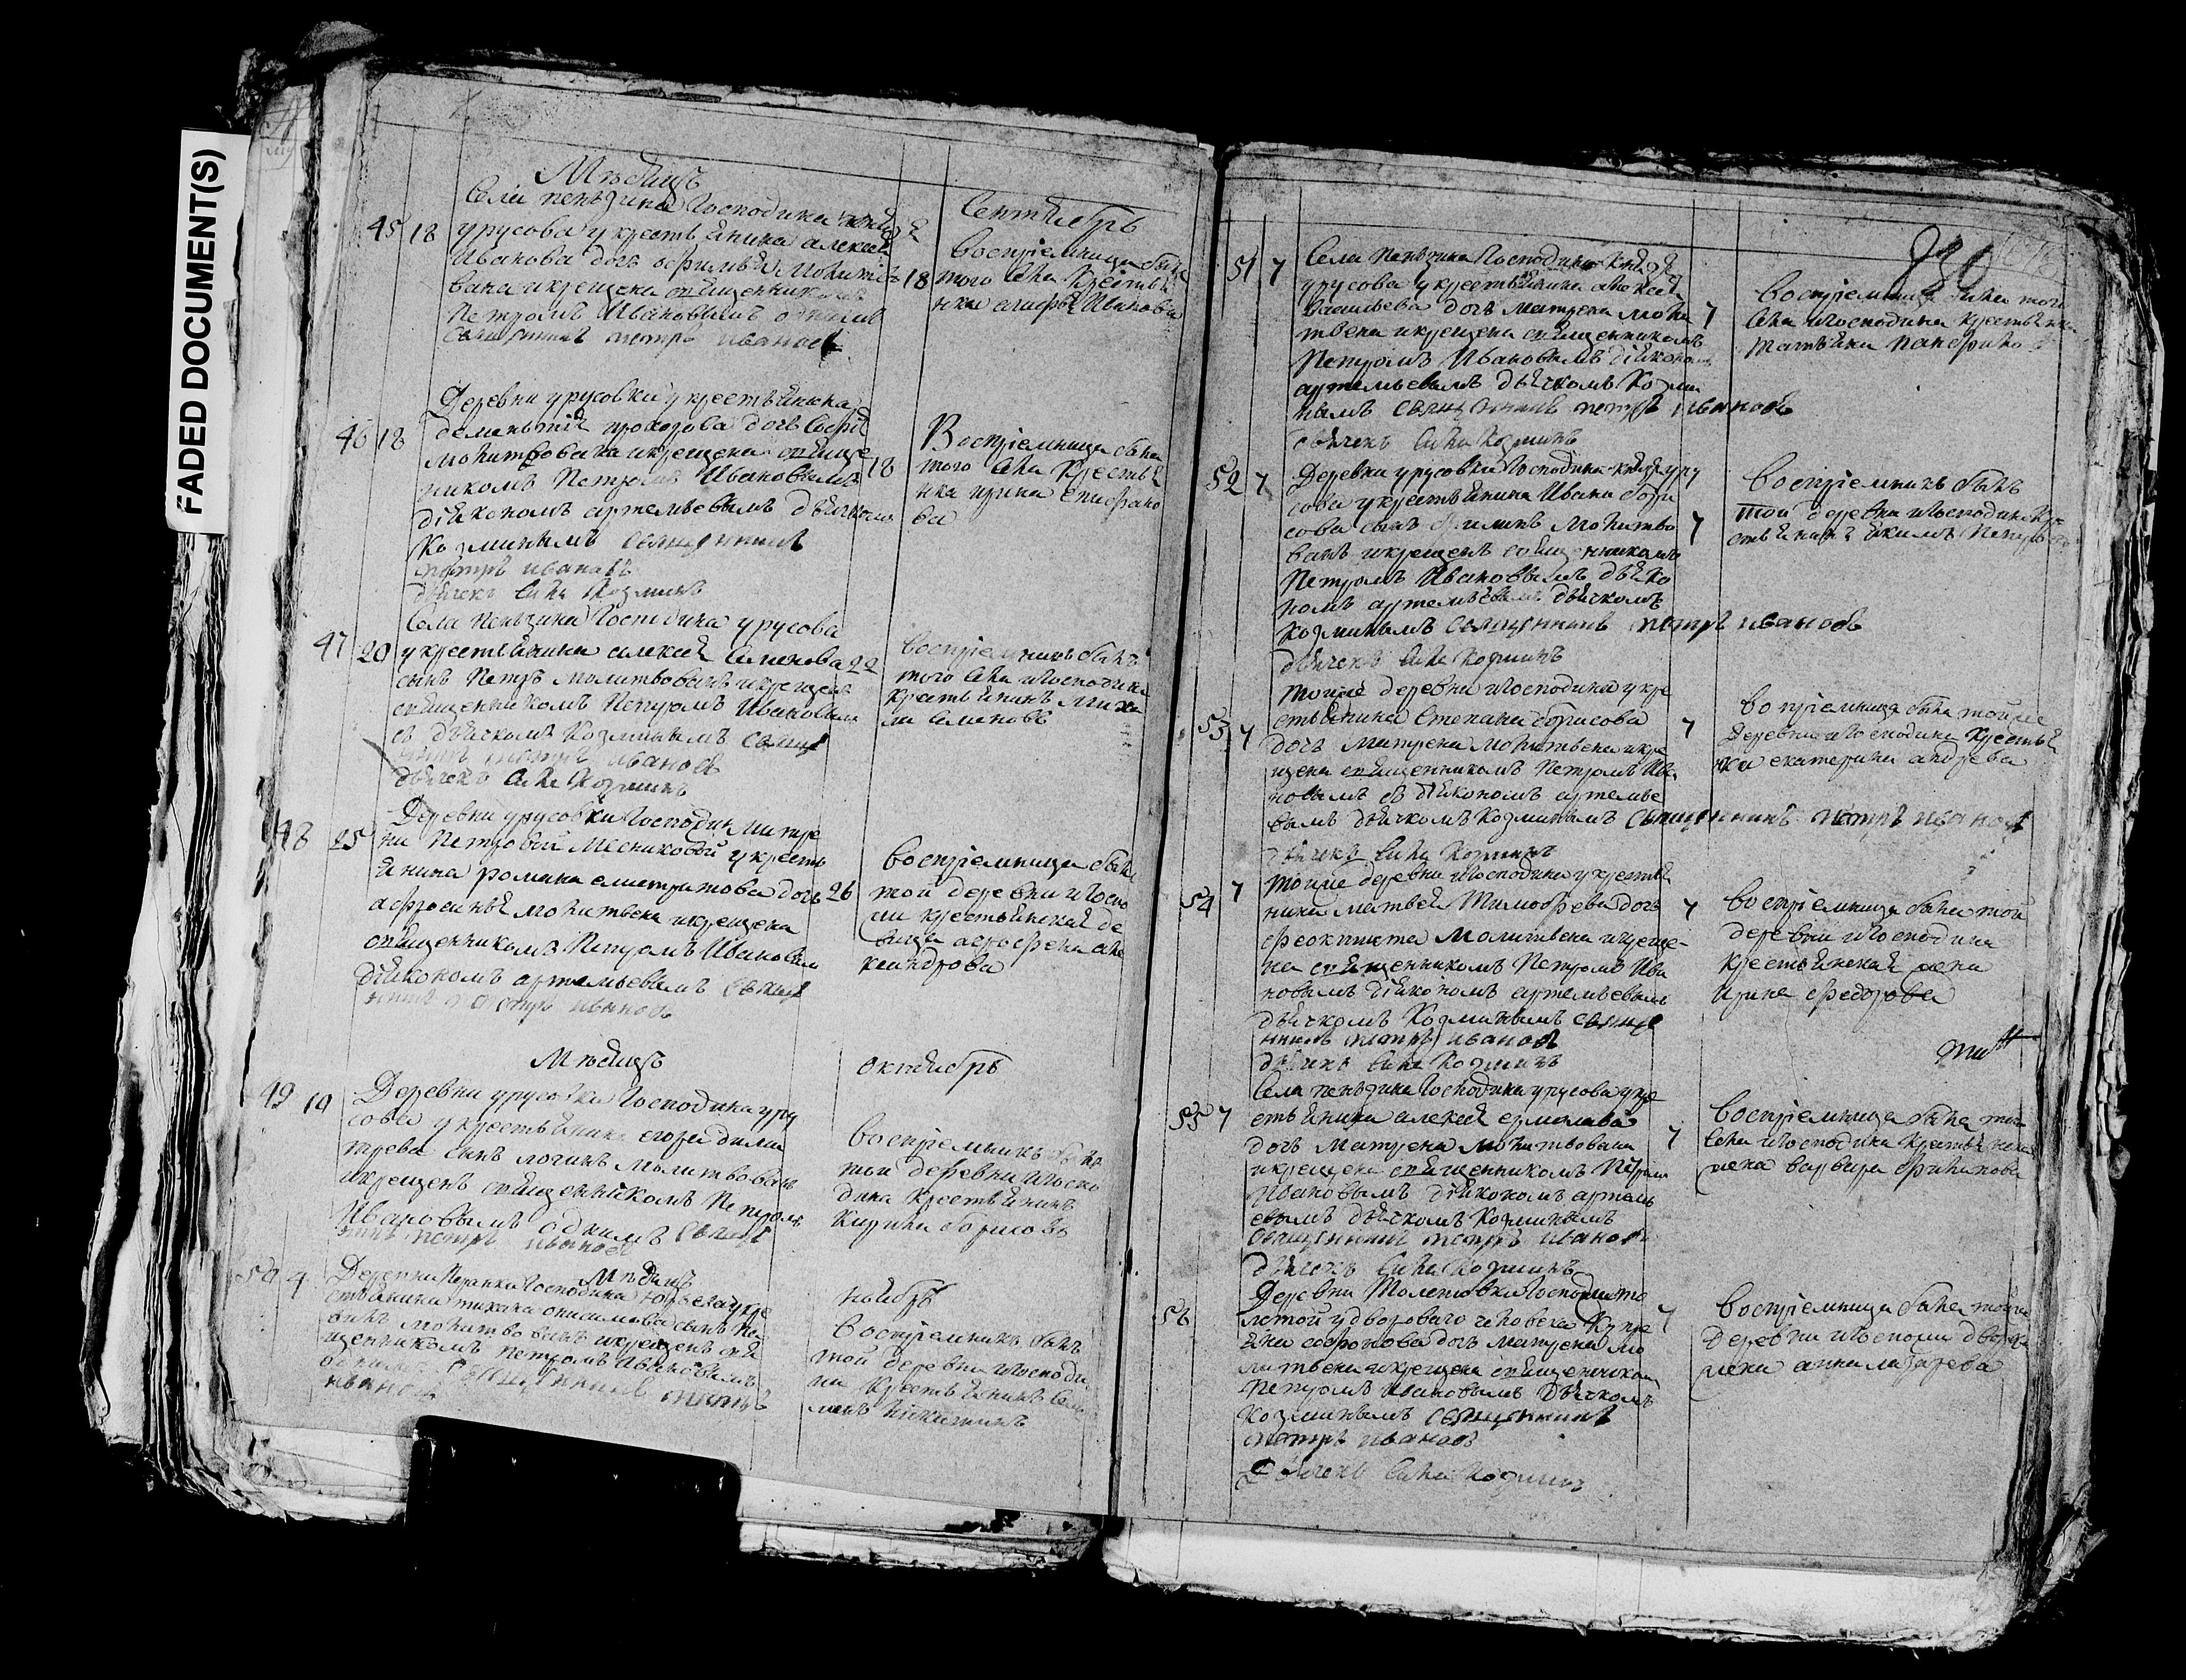 FADED DOCUMENT(S)
Мѣсяцъ
Сентябрь
45 18
Села пензина Господина князя
урусова у крестьянина алексея
Иванова дочь офимья молитво
вана и крещена священникомъ
Петромъ Ивановымъ однимъ
священникъ петръ ивановъ
18
Воспрiемница была
того села крестья
нка Иванова
46 18
Деревни урусовки у крестьянина
дементiя прохорова дочь
молитвована и крещена священ
никомъ Петромъ Ивановымъ
дiякономъ артемьевымъ дьячкомъ
Козминымъ священникъ
петръ ивановъ
дьячекъ Сила Козминъ
18
Воспрiемница была
того села крестья
нка ирина епифано
ва
47 20
Села Пензина Господина урусова
у крестьянина алексея Семенова
сынъ Петръ молитвованъ и крещенъ
священникомъ Петромъ Ивановымъ
съ дьячкомъ Козминымъ священ
никъ петръ ивановъ
дьячекъ Сила Козминъ
22
Воспрiемникъ былъ
того села и Господина
крестьянинъ миха
ла Семеновъ
48 25
Деревни урусовки Госпожи матре
ны Петровой Месниковой у кресть
янина романа елистратова дочь
афросинья молитвена и крещена
священникомъ Петромъ Ивановымъ
дiякономъ артемьевымъ священ
никъ петръ ивановъ
26
Воспрiемница была
той деревни и Госпо
жи крестьянская де
вица аграфена але
ксандрова
Мѣсяцъ
октябрь
49 19
Деревни урусовки Господина уру
сова у крестьянина егора дими
трева сынъ логинъ молитвованъ
и крещенъ священникомъ Петромъ
Ивановымъ однимъ священ
никъ петръ ивановъ
Воспрiемникъ былъ
той деревни и Госпо
дина крестьянинъ
Кирила борисовъ
Мѣсяцъ
ноябрь
50 4
Деревни Господина у кре
стьянина сынъ
молитвованъ и крещенъ свя
щенникомъ Петромъ Ивановымъ
однимъ священникъ петръ
ивановъ
Воспрiемникъ былъ
той деревни и Господи
на крестьянинъ Семи
менъ Никитинъ
51 7
Села Пензина Господина князя
урусова у крестьянина алексея
Васильева дочь матрена моли
твена и крещена священникомъ
Петромъ Ивановымъ дiякономъ
артемьевымъ дьячкомъ Козми
нымъ священникъ петръ ивановъ
дьячекъ Сила Козминъ
7
Воспрiемница была того
села и Господина крестьянка
татьяна
52 7
Деревни урусовки Господина князя уру
сова у крестьянина Ивана бори
сова сынъ филипъ молитво
ванъ и крещенъ священникомъ
Петромъ Ивановымъ дьяко
номъ артемьевымъ дьячкомъ
козминымъ священникъ петръ ивановъ
дьячекъ Сила Козминъ
7
Воспрiемникъ былъ
той деревни и Господина кре
стьянинъ якимъ Петровъ
53 7
тоиже деревни и Господина у кре
стьянина Степана борисова
дочь матрена молитвена и кре
щена священникомъ Петромъ Ива
новымъ съ дiякономъ артемье
вымъ дьячкомъ Козминымъ священникъ петръ ивановъ
дьячекъ Сила Козминъ
7
Воспрiемница была тойже
деревни и Господина крестья
нка екатерина андрева
54 7
тоиже деревни и Господина у крестья
нина матвея Тимофева дочь
феоктиста молитвена и креще-
на священникомъ Петромъ Ива
новымъ дiякономъ артемьевымъ
дьячкомъ Козминымъ священ
никъ петръ ивановъ
дьячекъ Сила Козминъ
7
Воспрiемница была той
деревни и Господина
крестьянская жена
ирина федорова
55 7
Села пензина Господина урусова у кре
стьянина алексея ермолаева
дочь Матрена молитвована
и крещена священникомъ Петромъ
Ивановымъ дiякономъ артемь
евымъ дьячкомъ Козминымъ
священникъ петръ ивановъ
дьячекъ Сила Козминъ
7
Воспрiемница была того
села и Господина крестьянская
жена варвара филипова
56
Деревни Толстовки Госпожи то
лстой у двороваго человека Купре
яна софронова дочь матрена мо
литвена и крещена священникомъ
Петромъ Ивановымъ дьячкомъ
козминымъ священникъ
петръ ивановъ
Дьячекъ Сила Козминъ
7
Воспрiемница была тойже
деревни и Госпожи дворова
жена анна лазарева